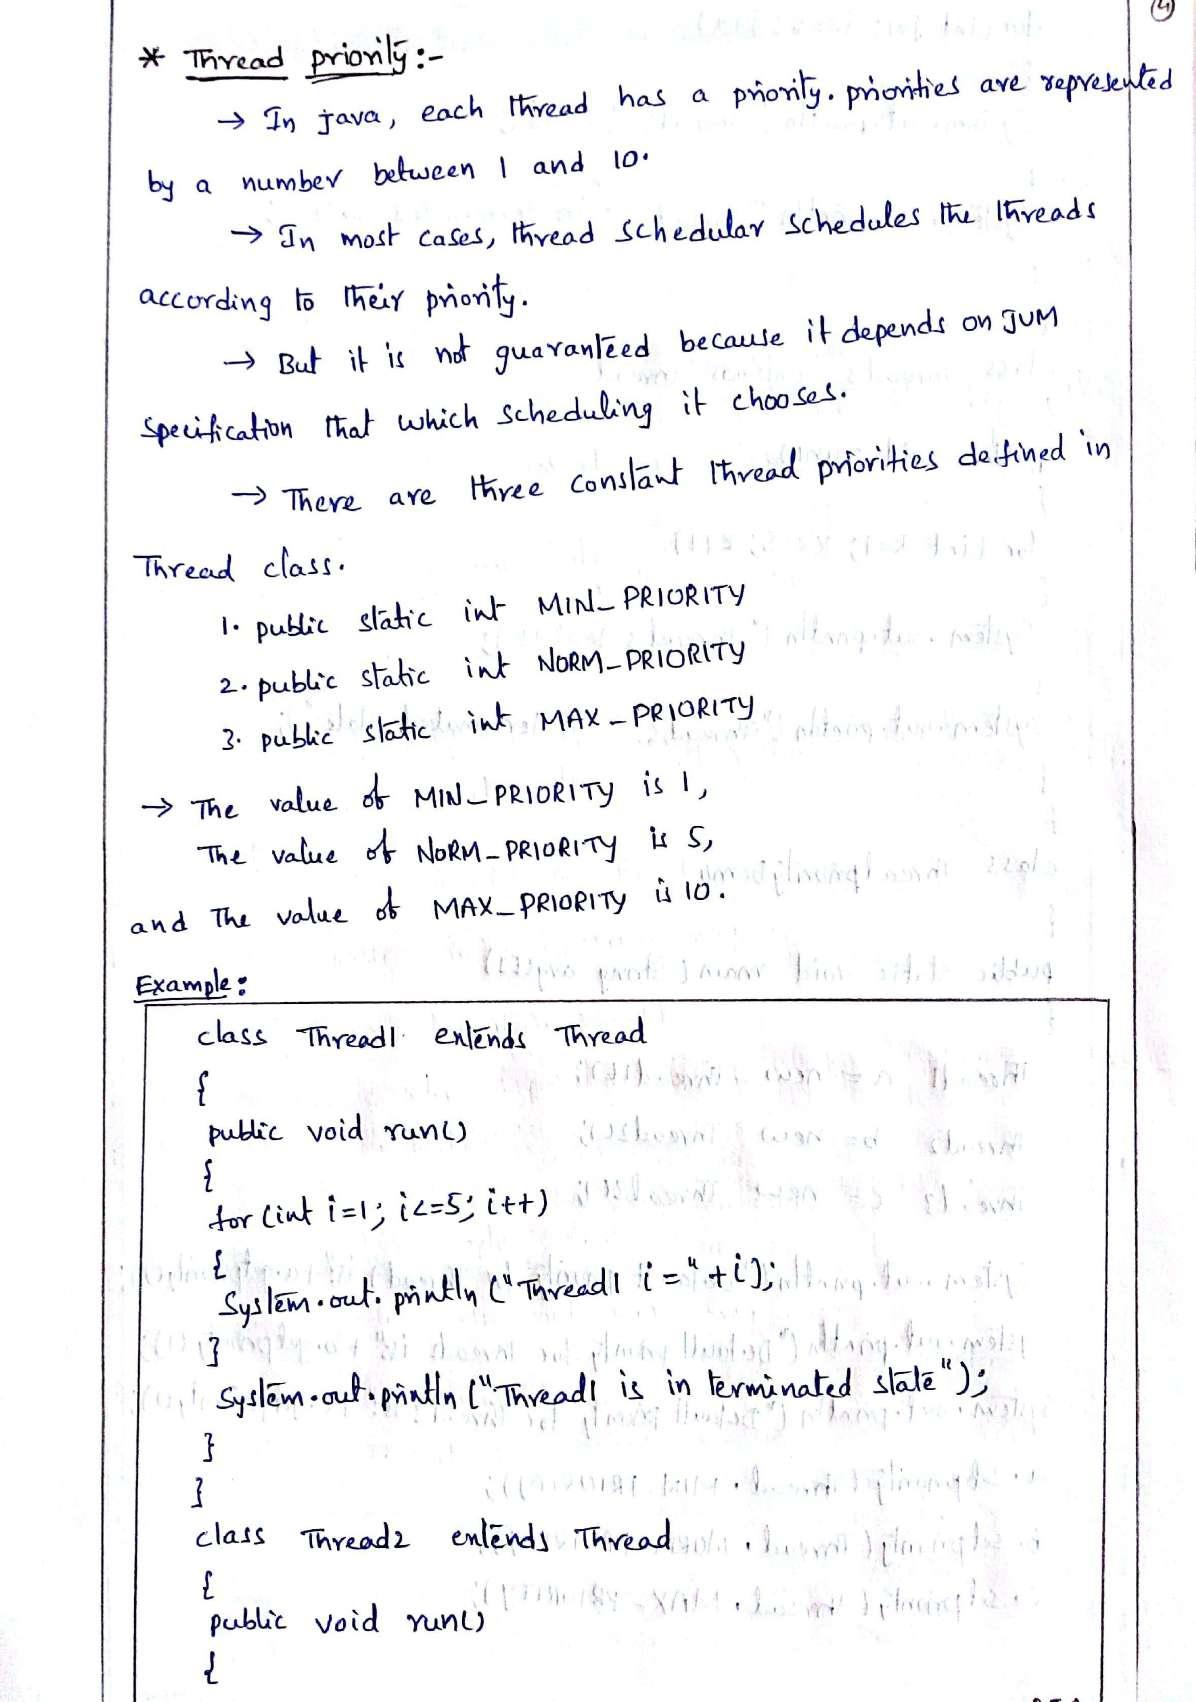 4
* Thread priority :-
→ In java, each thread has a priority. priorities are represented
by a number between 1 and 10.
→ In most cases, thread schedular schedules the threads
according to their priority.
→ But it is not guaranteed because it depends on JVM
specification that which scheduling it chooses.
→ There are three constant thread priorities deifined in
Thread class.
1. public static int MIN_PRIORITY
2. public static int NORM_PRIORITY
3. public static int MAX_PRIORITY
→ The value of MIN_PRIORITY is 1,
The value of NORM_PRIORITY is 5,
and The value of MAX_PRIORITY is 10.
Example :
class Thread1 extends Thread
{
public void run()
{
for (int i=1; i<=5; i++)
{
System.out.println ("Thread1 i = " +i);
}
System.out.println ("Thread1 is in terminated state");
}
}
class Thread2 extends Thread
{
public void run()
{